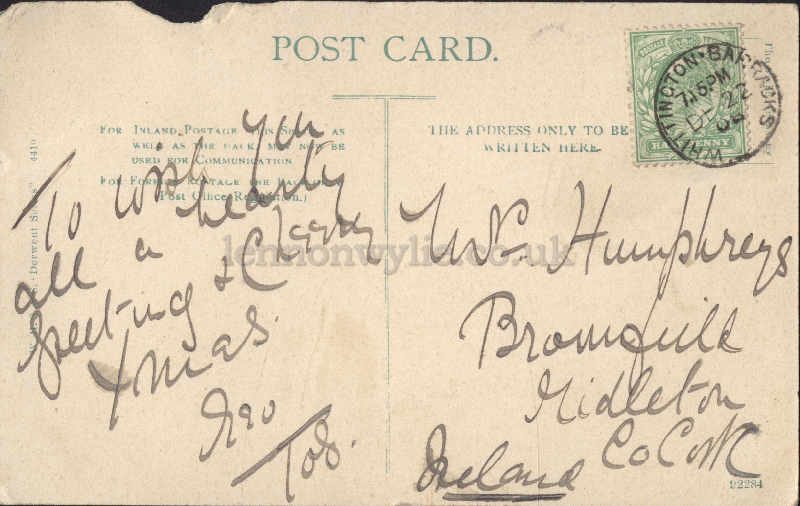 POST CARD.
FOR INLAND POSTAGE THIS SPACE, AS
WELL AS THE BACK, MAY NOW BE
USED FOR COMMUNICATION
FOR FOREIGN POSTAGE THE BACK ONLY
(Post Office Regulation.)
THE ADDRESS ONLY TO BE
WRITTEN HERE.
WHITTINGTON·BARRACKS
7.15PM
DE 22
HALFPENNY
To wish you
all a hearty
greeting & Cheery
Xmas.
Geo
Tob.
Humphreys
Midleton
Co Cork
Ireland
"Derwent Series" 4410
92284
lennonwylie.co.uk